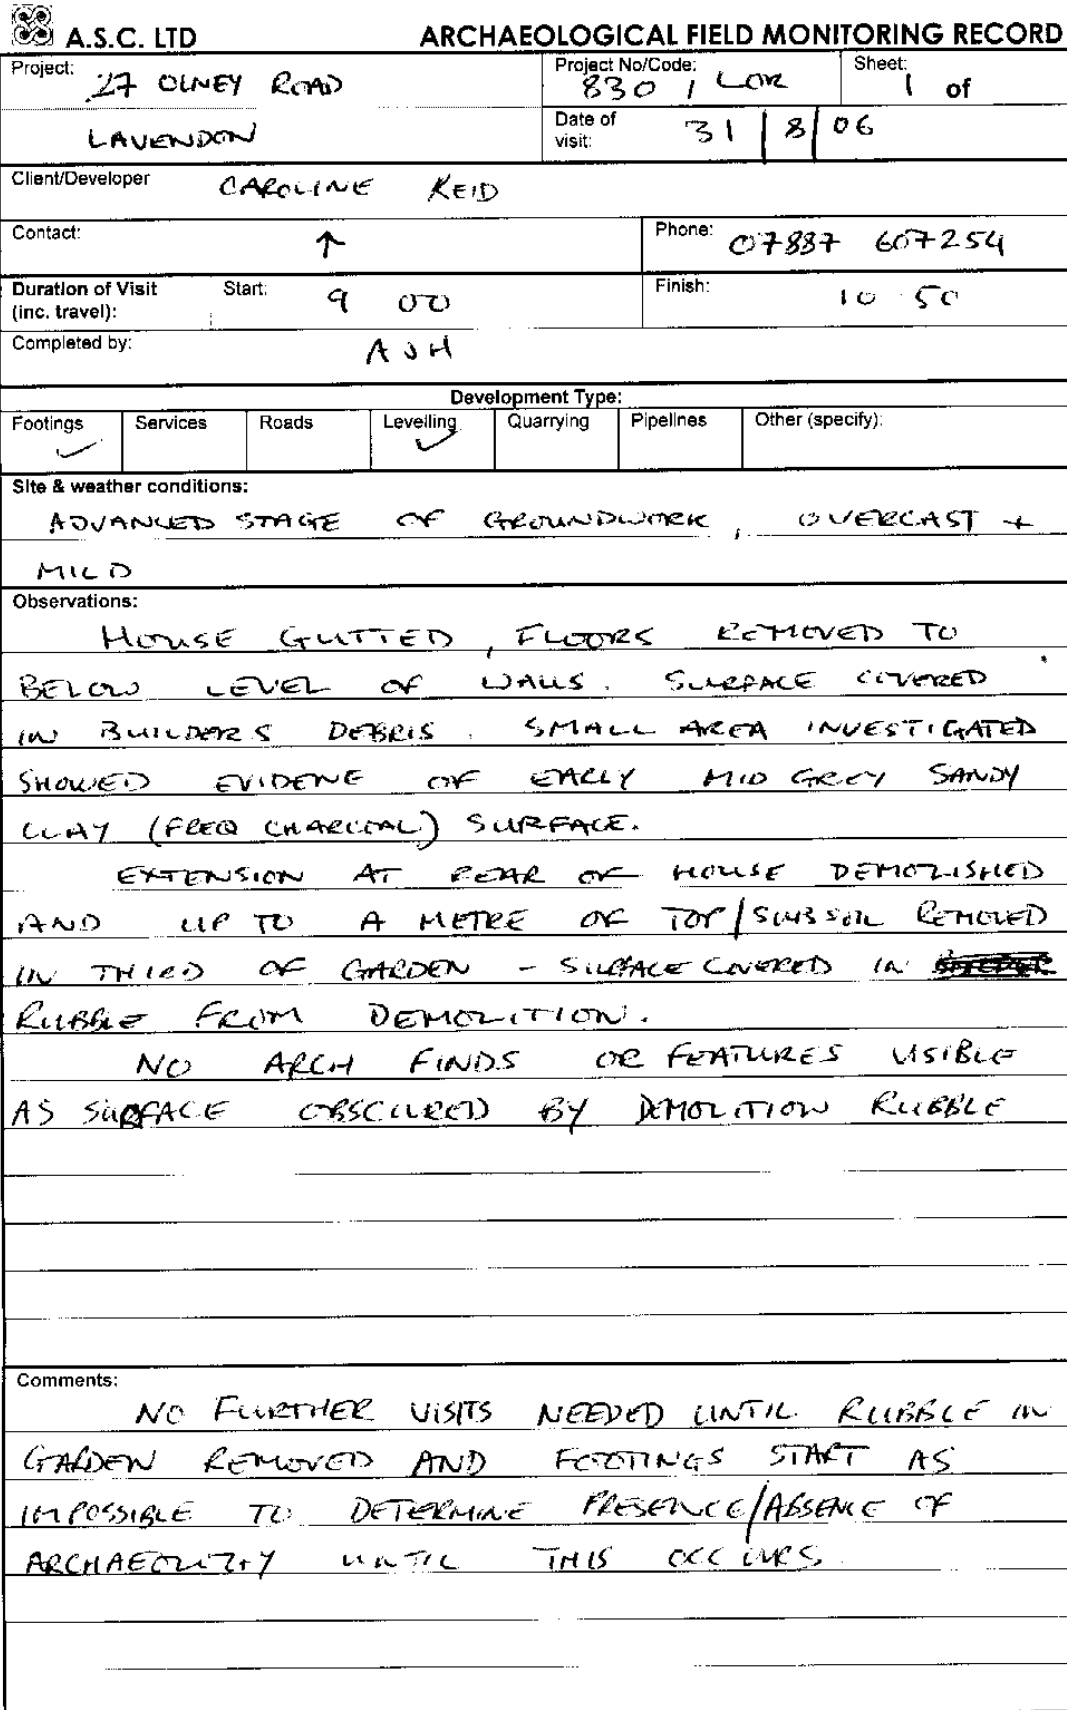 A.S.C. LTD ARCHAEOLOGICAL FIELD MONITORING RECORD
Project: 27 OLNEY ROAD
LAVENDON
Project No/Code: 830 / LOR
Sheet: 1 of
Date of visit: 31 / 8 / 06
Client/Developer CAROLINE REID
Contact: ↑
Phone: 07887 607254
Duration of Visit (inc. travel): Start: 9 00
Finish: 10 50
Completed by: AJH
Development Type:
Footings ✓ Services Roads Levelling ✓ Quarrying Pipelines Other (specify):
Site & weather conditions:
ADVANCED STAGE OF GROUNDWORK, OVERCAST +
MILD
Observations:
HOUSE GUTTED, FLOORS REMOVED TO
BELOW LEVEL OF WALLS. SURFACE COVERED
IN BUILDERS DEBRIS. SMALL AREA INVESTIGATED
SHOWED EVIDENE OF EARLY MID GREY SANDY
CLAY (FREQ CHARCOAL) SURFACE.
EXTENSION AT REAR OF HOUSE DEMOLISHED
AND UP TO A METRE OF TOP/SUBSOIL REMOVED
IN THIRD OF GARDEN - SURFACE COVERED IN
RUBBLE FROM DEMOLITION.
NO ARCH FINDS OR FEATURES VISIBLE
AS SURFACE OBSCURED BY DEMOLITION RUBBLE
Comments:
NO FURTHER VISITS NEEDED UNTIL RUBBLE IN
GARDEN REMOVED AND FOOTINGS START AS
IMPOSSIBLE TO DETERMINE PRESENCE/ABSENCE OF
ARCHAEOLOGY UNTIL THIS OCCURS.